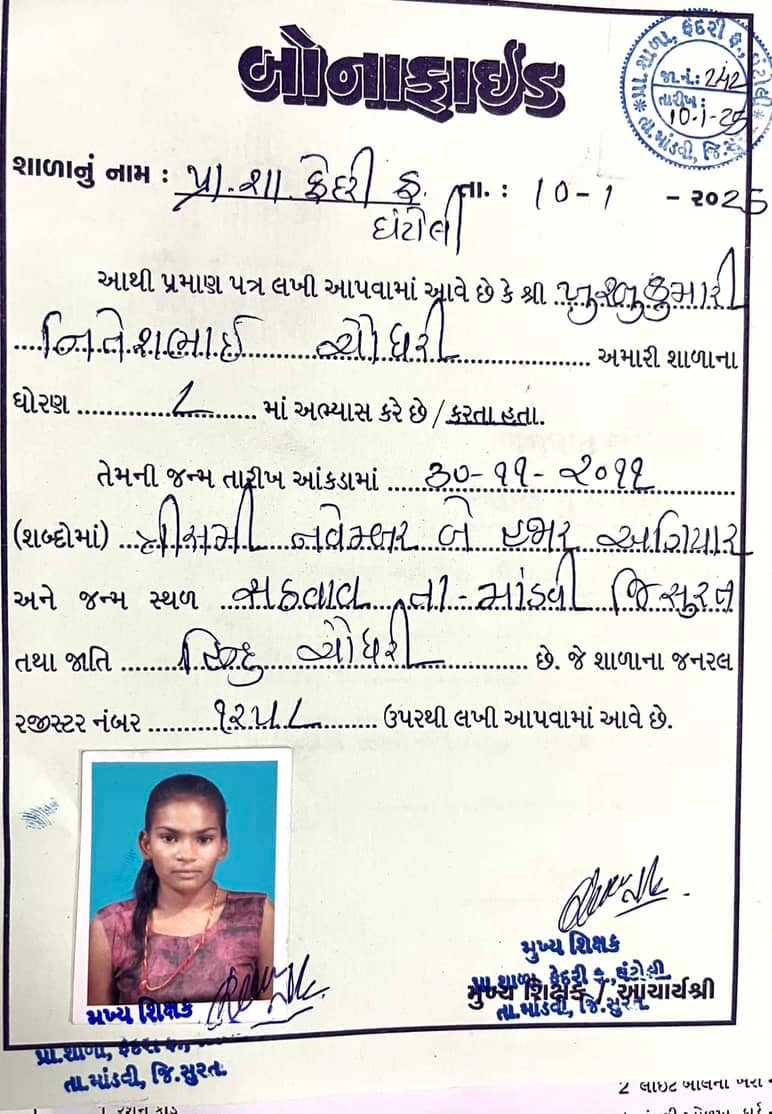 બોનાફાઇડ
પ્રા. શાળા, ફેદરી ફ., ઘંટોલી
જા.નં.: 242
તારીખ: 10-1-25
તા.માંડવી, જિ.સુરત
શાળાનું નામ : પ્રા. શા. ફેદરી ફ. તા. : 10-1 - ૨૦25
ઘંટોલી
આથી પ્રમાણ પત્ર લખી આપવામાં આવે છે કે શ્રી ખુશ્બુકુમારી
નિતેશભાઇ ચૌધરી અમારી શાળાના
ધોરણ ૮ માં અભ્યાસ કરે છે / કરતા હતા.
તેમની જન્મ તારીખ આંકડામાં ૩૦-૧૧-૨૦૧૧
(શબ્દોમાં) ત્રીસમી નવેમ્બર બે હજાર અગિયાર
અને જન્મ સ્થળ તા-માંડવી જિ સુરત
તથા જાતિ હિન્દુ ચૌધરી છે. જે શાળાના જનરલ
રજીસ્ટર નંબર ૧૨૫૮ ઉપરથી લખી આપવામાં આવે છે.
મુખ્ય શિક્ષક
પ્રા.શાળા, ફેદરી ફ.,ઘંટોલી
મુખ્ય શિક્ષક / આચાર્યશ્રી
તા.માંડવી, જિ.સુરત.
મુખ્ય શિક્ષક
પ્રા.શાળા, ફેદરી ફ.,
તા.માંડવી, જિ.સુરત.
2 લાઇટ બીલની ખરી